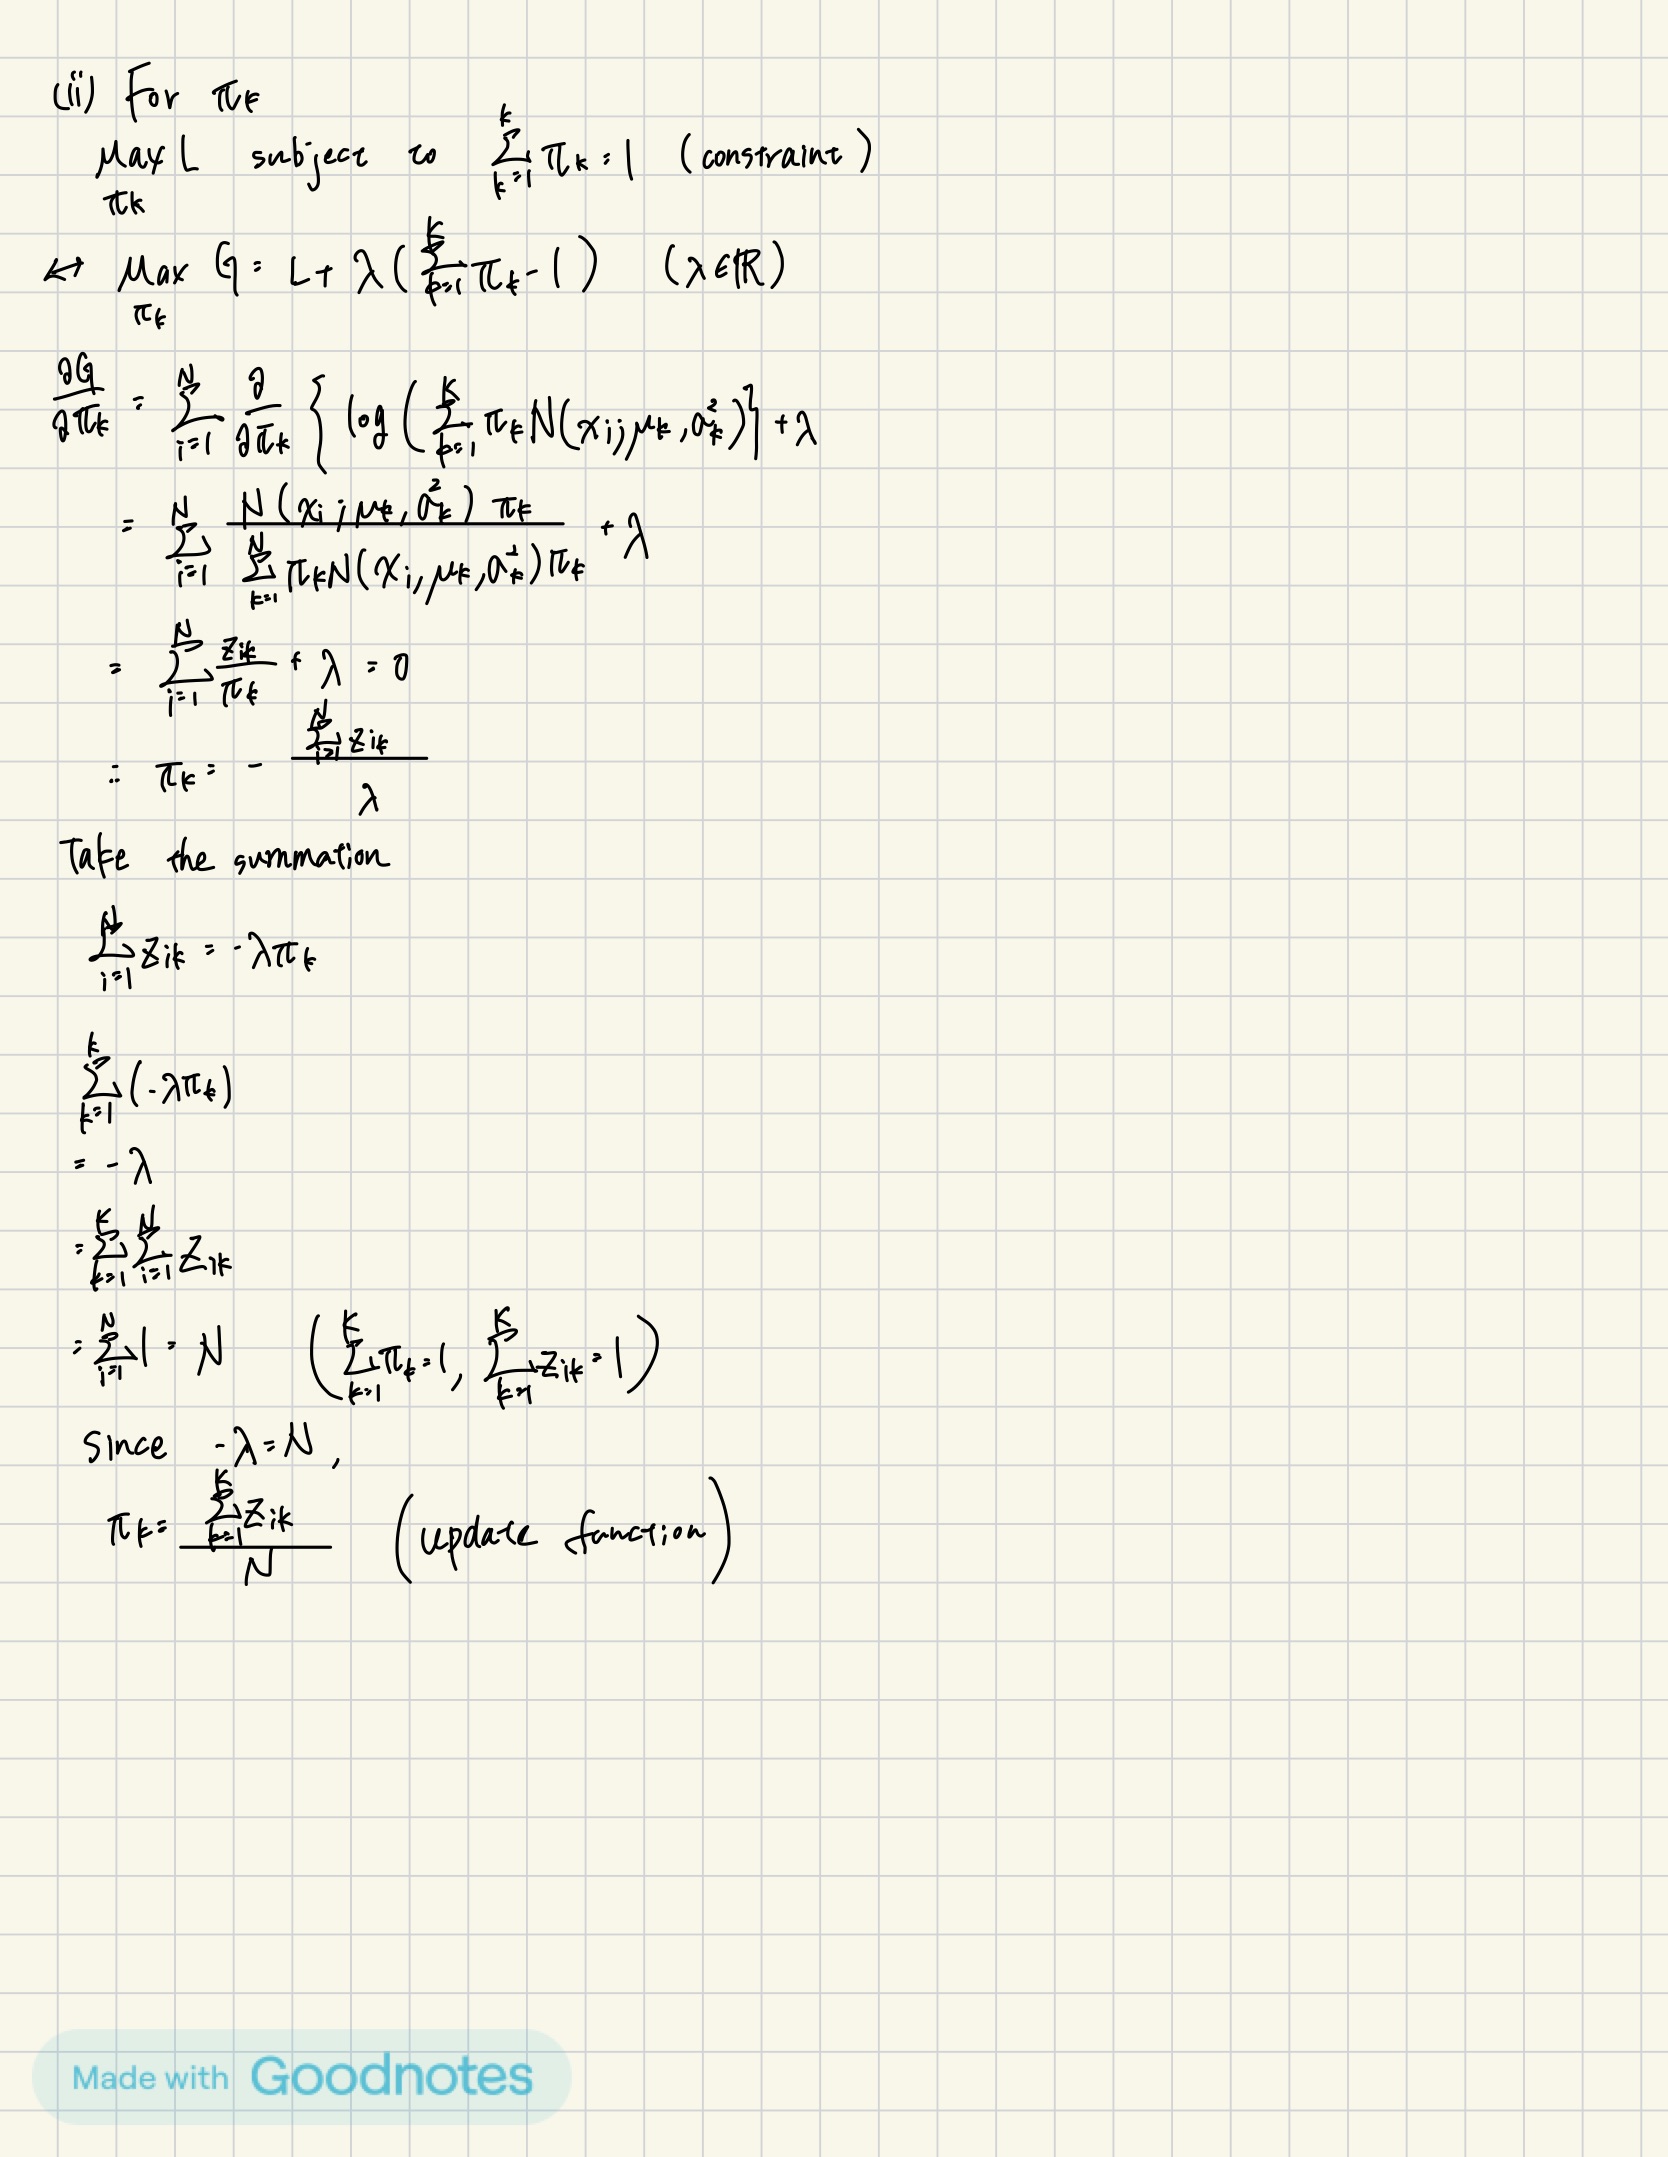 (ii) For πk
Max L subject to Σ_{k=1}^{k} πk = 1 (constraint)
πk
↔ Max G = L + λ(Σ_{k=1}^{K} πk - 1) (λ∈ℝ)
πk
∂G/∂πk = Σ_{i=1}^{N} ∂/∂πk { log ( Σ_{k=1}^{K} πk N(xi; μk, σk²) } + λ
= Σ_{i=1}^{N} N(xi; μk, σk²) πk / Σ_{k=1}^{N} πk N(xi, μk, σk²) πk + λ
= Σ_{i=1}^{N} zik/πk + λ = 0
∴ πk = - Σ_{i=1}^{N} zik / λ
Take the summation
Σ_{i=1}^{N} zik = -λπk
Σ_{k=1}^{k} (-λπk)
= -λ
= Σ_{k=1}^{K} Σ_{i=1}^{N} zik
= Σ_{i=1}^{N} 1 = N ( Σ_{k=1}^{K} πk = 1, Σ_{k=1}^{K} zik = 1 )
since -λ = N,
πk = Σ_{k=1}^{K} zik / N (update function)
Made with Goodnotes